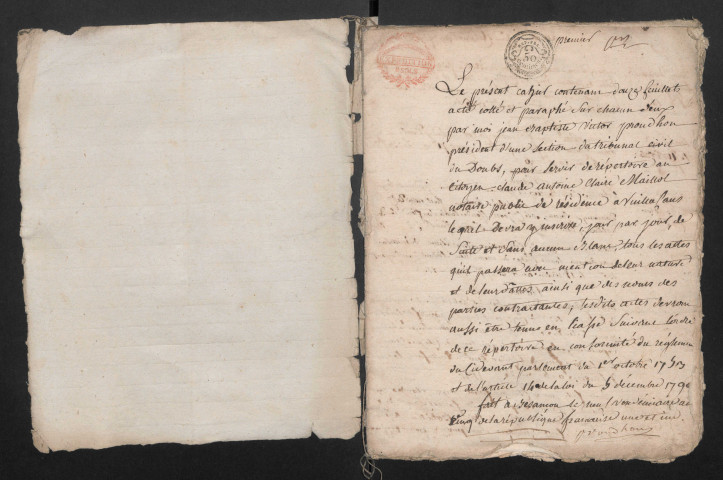 premier
Le présent cahier contenant douze feuillets
a été cotté et paraphé sur chacun d'eux
par moi jean Baptiste victor proudhon
président d'une section du tribunal civil
du Doubs, pour servir de répertoire au
citoyen claude antoine claire Maillot
notaire public de résidence a
lequel devra y inscrire, jour par jour, de
suite et sans aucun Blanc, tous les actes
qu'il passera avec mention de leur nature
et de leur dattes ainsi que des noms des
parties contractantes, lesdits actes devront
aussi être tenus en liasse suivant l'ordre
de ce répertoire en conformité du réglement
du cidevant parlement du 1er octobre 17
et de l'article 14 de la loi du 5 decembre 1790
fait a Besancon le neuf vendémiaire an
cinq de la république francaise une et ind
proudhon